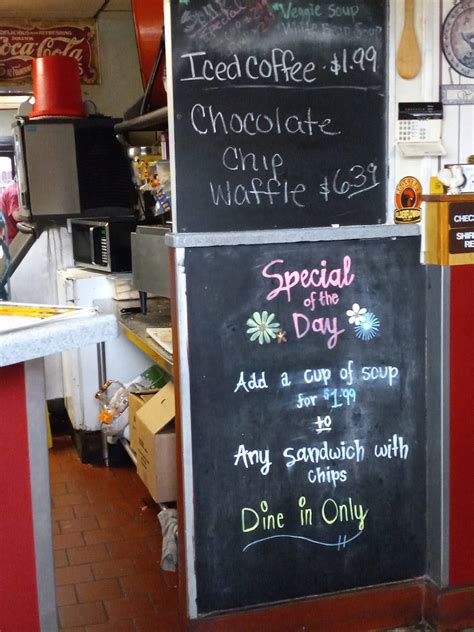 DELICIOUS AND REFRESHING
Coca-Cola
Special
Veggie Soup
Soup
Iced Coffee $1.99
Chocolate
Chip
Waffle $6.39
Special
of the
Day
Add a cup of soup
for $1.99
to
Any sandwich with
chips
Dine in Only
CHEC
SHIR
RE